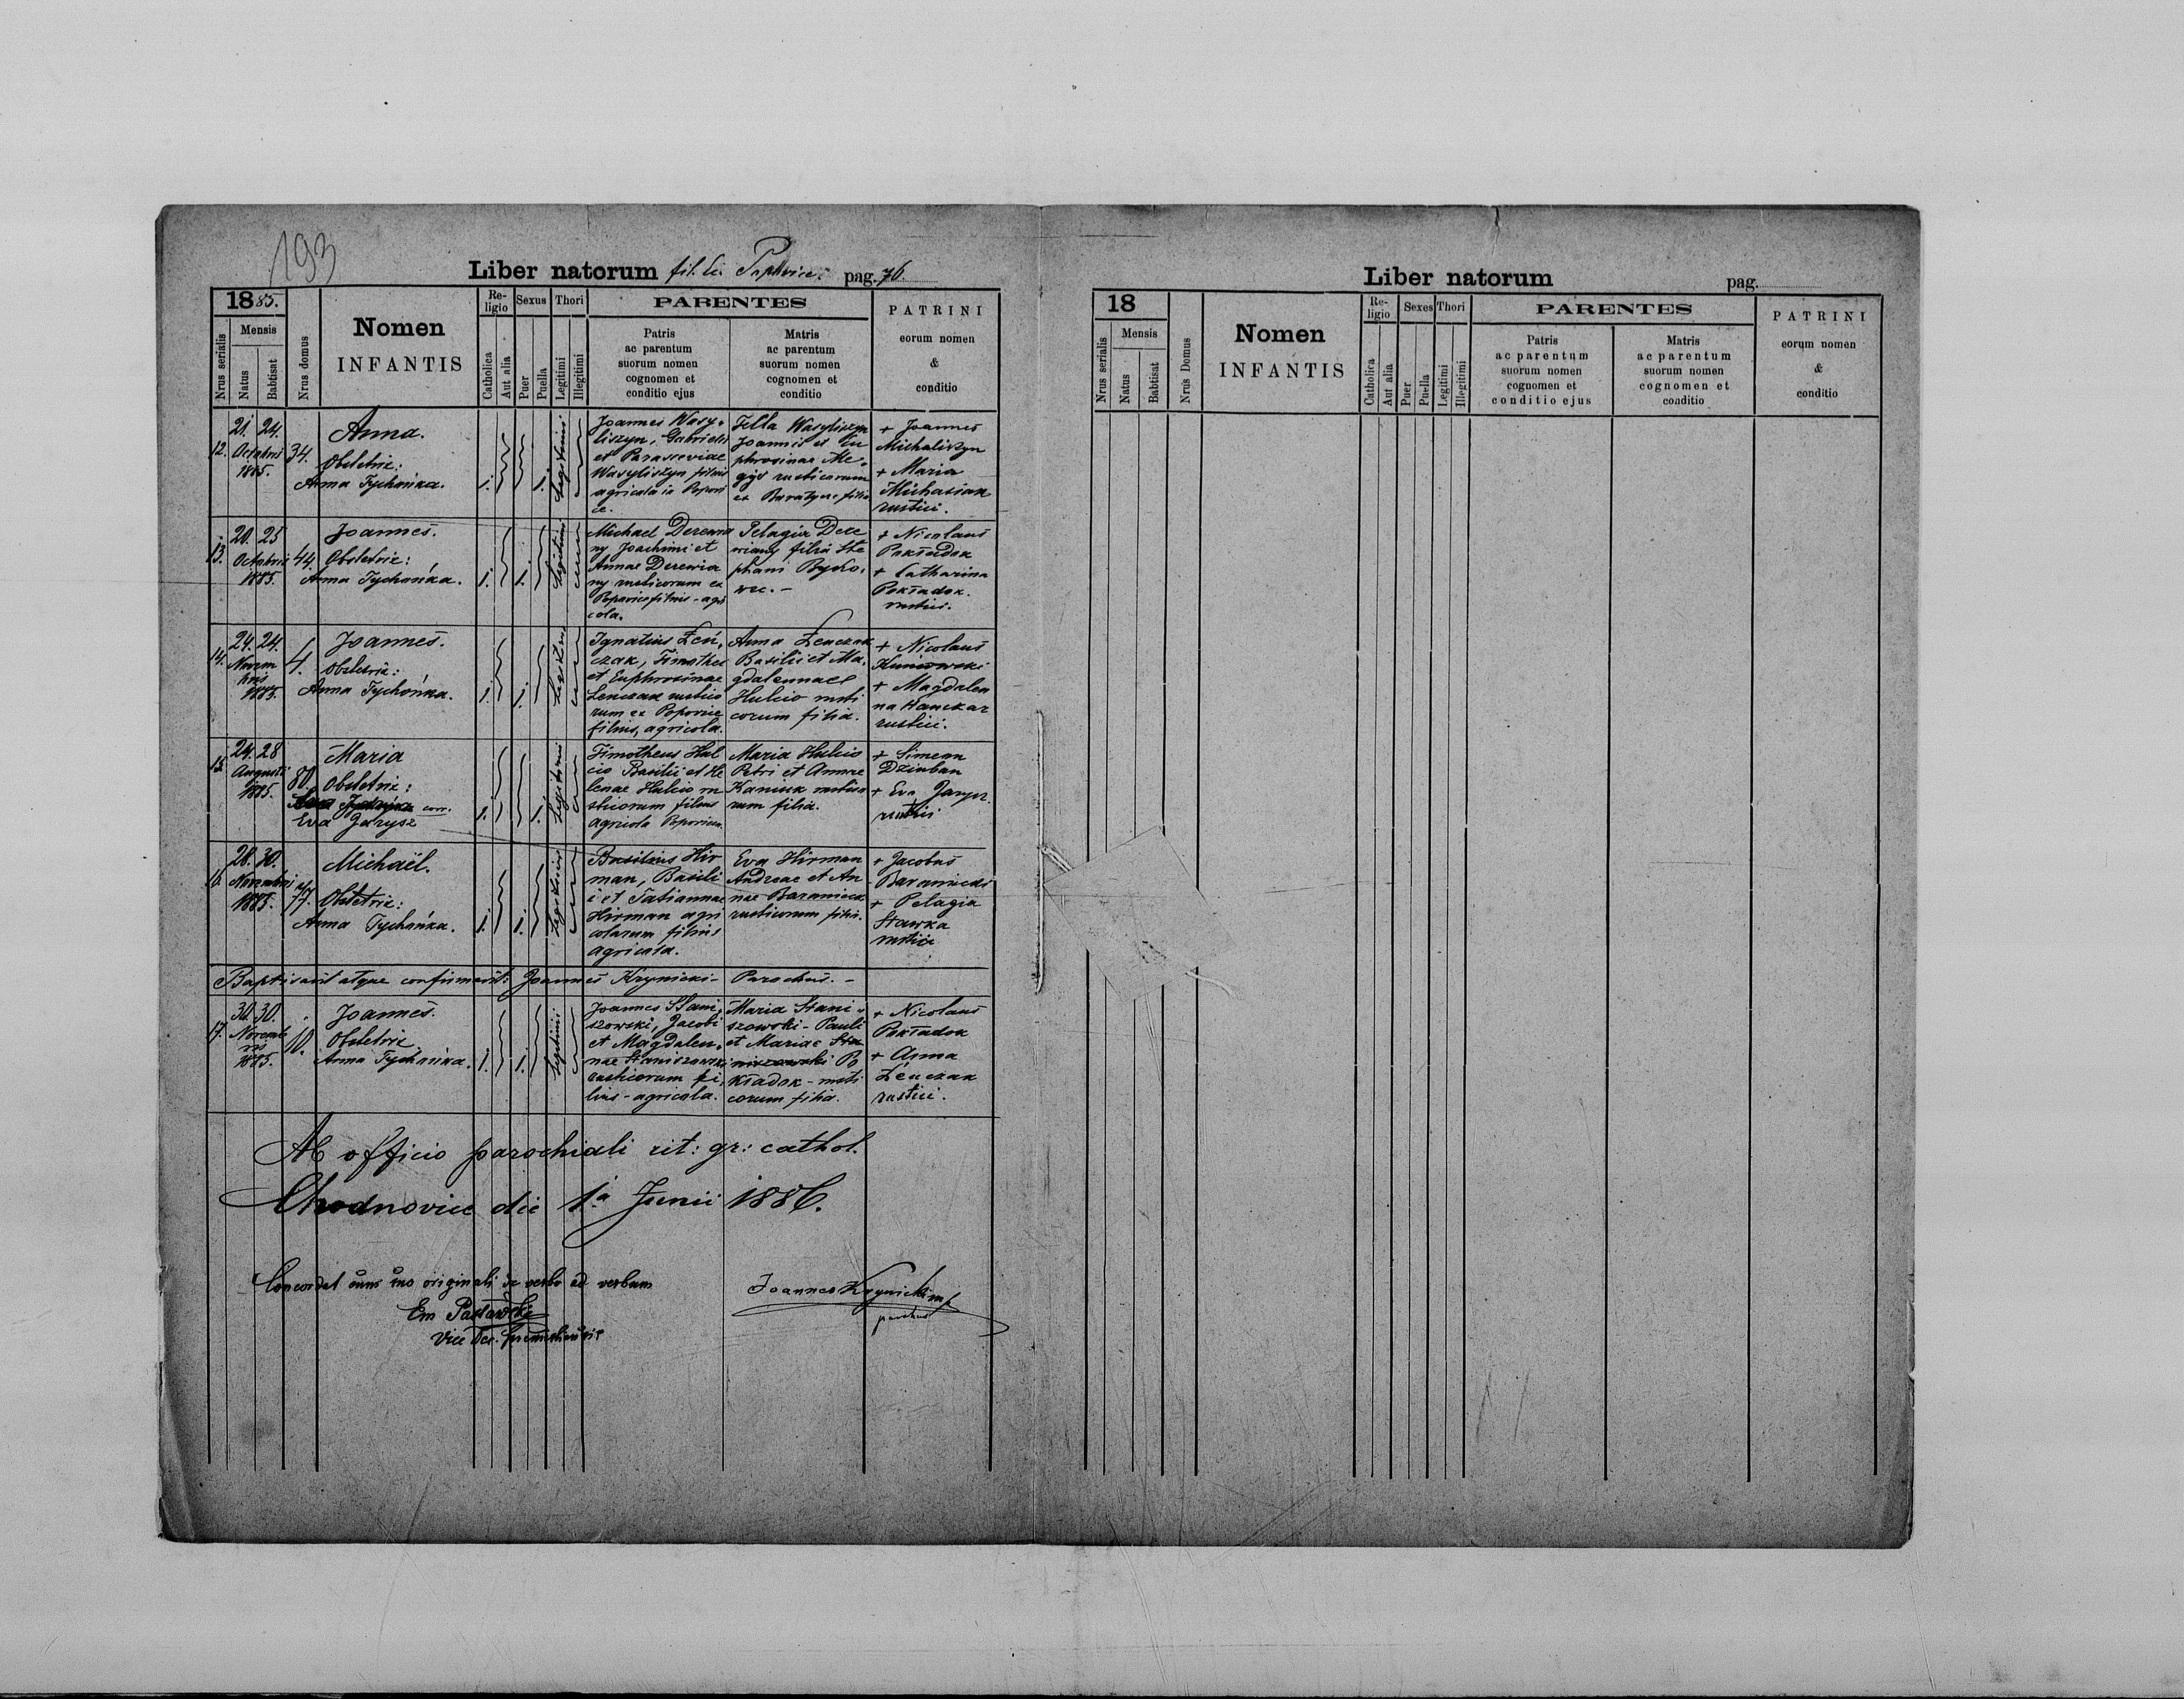 193
Liber natorum fil. Ec. Popovice pag. 76.
1885.
Nrus serialis
Mensis
Natus
Babtisat
Nrus domus
Nomen
INFANTIS
Religio
Catholica
Aut alia
Sexus
Puer
Puella
Thori
Legitimi
Illegitimi
PARENTES
Patris
ac parentum
suorum nomen
cognomen et
conditio ejus
Matris
ac parentum
suorum nomen
cognomen et
conditio
PATRINI
eorum nomen
&
conditio
12.
21. 24.
Octobris
1885.
34.
Anna.
Obstetrix:
Anna Tychońka.
1.
1.
Legitimi
Joannes Wasy-
liszyn, Gabrielis
et Parasceviae
Wasyliszyn filius
agricola in Popovi
ce.
Tella Wasyliszyn
Joannis et Eu
phrosinae Me-
gis rusticorum
ex filia
+ Joannes
Michaliszyn
+ Maria
Michasiak
rustici.
13.
20. 25
Octobris
1885.
44.
Joannes.
Obstetrix:
Anna Tychońka.
1.
1.
Legitimi
Michael Derewia
ny Joachimi et
Annae Derewia
ny rusticorum ex
Popovice filius - agri
cola.
Pelagia Dere
wiany filia Ste
phani Byko-
wec. -
+ Nicolaus
Pokładok
+ Catharina
Pokładok.
rustici.
14.
24. 24.
Novem
bris
1885.
4.
Joannes.
Obstetrix:
Anna Tychońka.
1.
1.
Legitimi
Ignatius Łen-
czak, Timothei
et Euphrosinae
Lenczak rustico
rum ex Popovice
filius, agricola.
Anna Łenczak
Basilii et Ma-
gdalennae
Hulcio rusti
corum filia.
+ Nicolaus
Kunowski
+ Magdalen
na Hanczar
rustici.
15.
24. 28
Augusti
1885.
80.
Maria
Obstetrix:
corr.
Eva Jarysz
1.
1.
Legitimi
Timotheus Hul
cio Basilii et He
lenae Hulcio ru
sticorum filius
agricola Popovice.
Maria Hulcio
Petri et Annae
Kaniuk rustico
rum filia.
+ Simeon
Dziuban
+ Eva Jarysz
rustici
16.
28. 30.
Novembris
1885.
77.
Michaël.
Obstetrix:
Anna Tychońka.
1.
1.
Legitimi
Basilius Hir
man, Basili
i et Tatiannae
Hirman agri
colarum filius
agricola.
Eva Hirman
Andreae et An
nae Baraniecka
rusticorum filia.
+ Jacobus
Baraniecki
+ Pelagia
Stawka
rustici
Baptisavit atque confirmavit: Joannes Krynicki - Parochus. -
17.
30. 30.
Novemb
ris
1885.
10.
Joannes.
Obstetrix
Anna Tychońka.
1.
1.
Legitimi
Joannes Stani-
szowski, Jacobi
et Magdalen-
nae Staniszowski
rusticorum fi-
lius - agricola.
Maria Stani-
szowski - Pauli
et Mariae Sta
niszowski Po
kładok - rusti
corum filia.
+ Nicolaus
Pokładok
+ Anna
Łenczak
rustici.
Ab officio parochiali rit: gr: cathol.
Chodnovice die 1a Junii 1886.
Concordat cum suo originali de verbo ad verbum
Em Pasławski
Vice Dec.
Joannes Krynicki mp
parochus
Liber natorum pag.
18
Nrus serialis
Mensis
Natus
Babtisat
Nrus Domus
Nomen
INFANTIS
Religio
Catholica
Aut alia
Sexes
Puer
Puella
Thori
Legitimi
Illegitimi
PARENTES
Patris
ac parentum
suorum nomen
cognomen et
conditio ejus
Matris
ac parentum
suorum nomen
cognomen et
conditio
PATRINI
eorum nomen
&
conditio